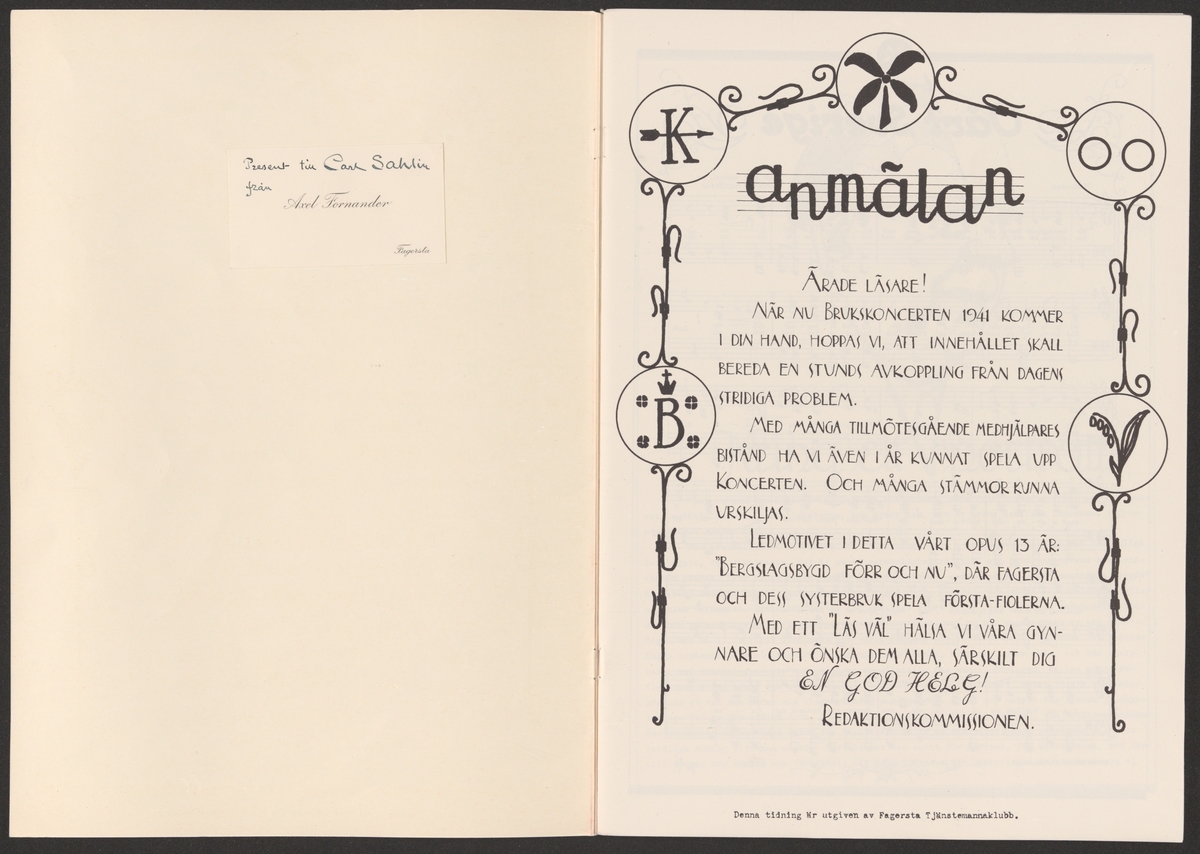 Present till Carl Sahlin
från
Axel Fornander
Fagersta
K
B
anmälan
ÄRADE LÄSARE!
NÄR NU BRUKSKONCERTEN 1941 KOMMER
I DIN HAND, HOPPAS VI, ATT INNEHÅLLET SKALL
BEREDA EN STUNDS AVKOPPLING FRÅN DAGENS
STRIDIGA PROBLEM.
MED MÅNGA TILLMÖTESGÅENDE MEDHJÄLPARES
BISTÅND HA VI ÄVEN I ÅR KUNNAT SPELA UPP
KONCERTEN. OCH MÅNGA STÄMMOR KUNNA
URSKILJAS.
LEDMOTIVET I DETTA VÅRT OPUS 13 ÄR:
"BERGSLAGSBYGD FÖRR OCH NU", DÄR FAGERSTA
OCH DESS SYSTERBRUK SPELA FÖRSTA-FIOLERNA.
MED ETT "LÄS VÄL" HÄLSA VI VÅRA GYN-
NARE OCH ÖNSKA DEM ALLA, SÄRSKILT DIG
EN GOD HELG!
REDAKTIONSKOMMISSIONEN.
Denna tidning är utgiven av Fagersta Tjänstemannaklubb.